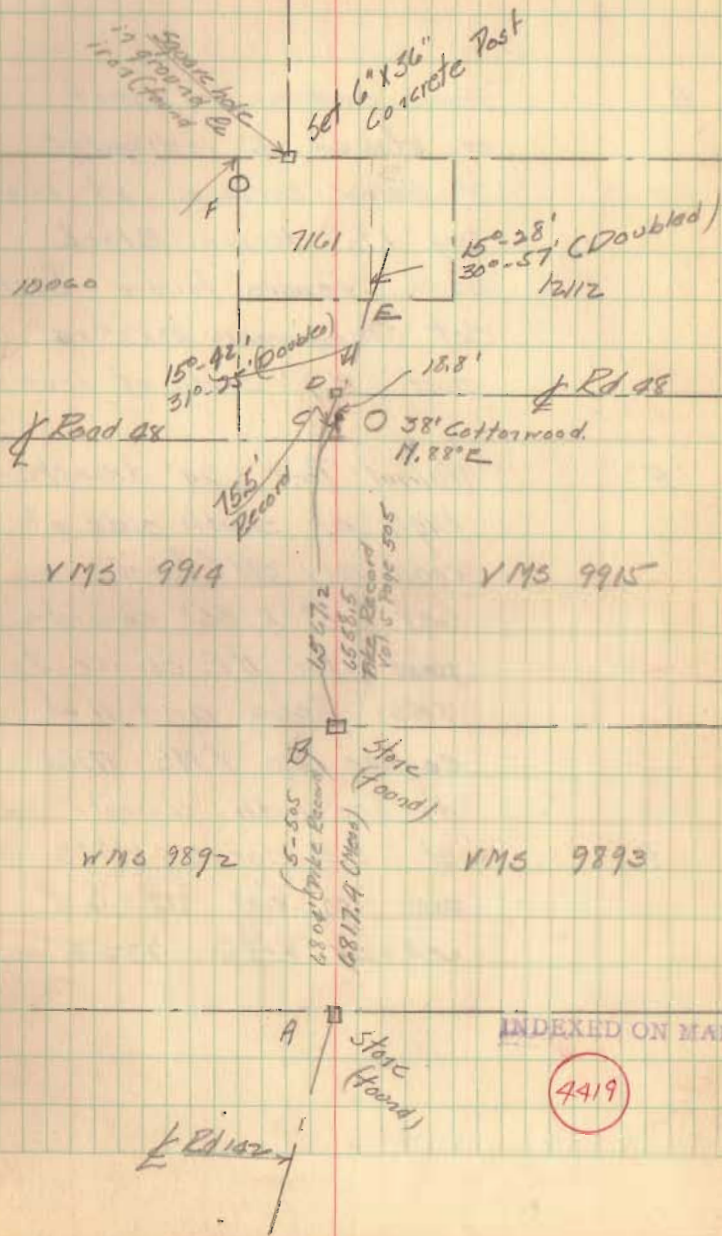 Square hole
in ground &
iron (found
Set 6" X 36"
Concrete Post
F
7161
15°-28'
30°-57' (Doubled)
10060
12112
E
15°-42'
31°-25' (Double)
H
D
18.8'
℄ Rd 48
℄ Road 48
C
38" Cottonwood.
N. 88° E
155'
Record
VMS 9914
VMS 9915
6567.2
6558.5
Pike Record
Vol 5 Page 505
B
Stone
(found)
VMS 9892
VMS 9893
6804' (Pike Record)
5-505
6817.9 (Meas)
A
Stone
(found)
INDEXED ON MA
4419
℄ Rd 142